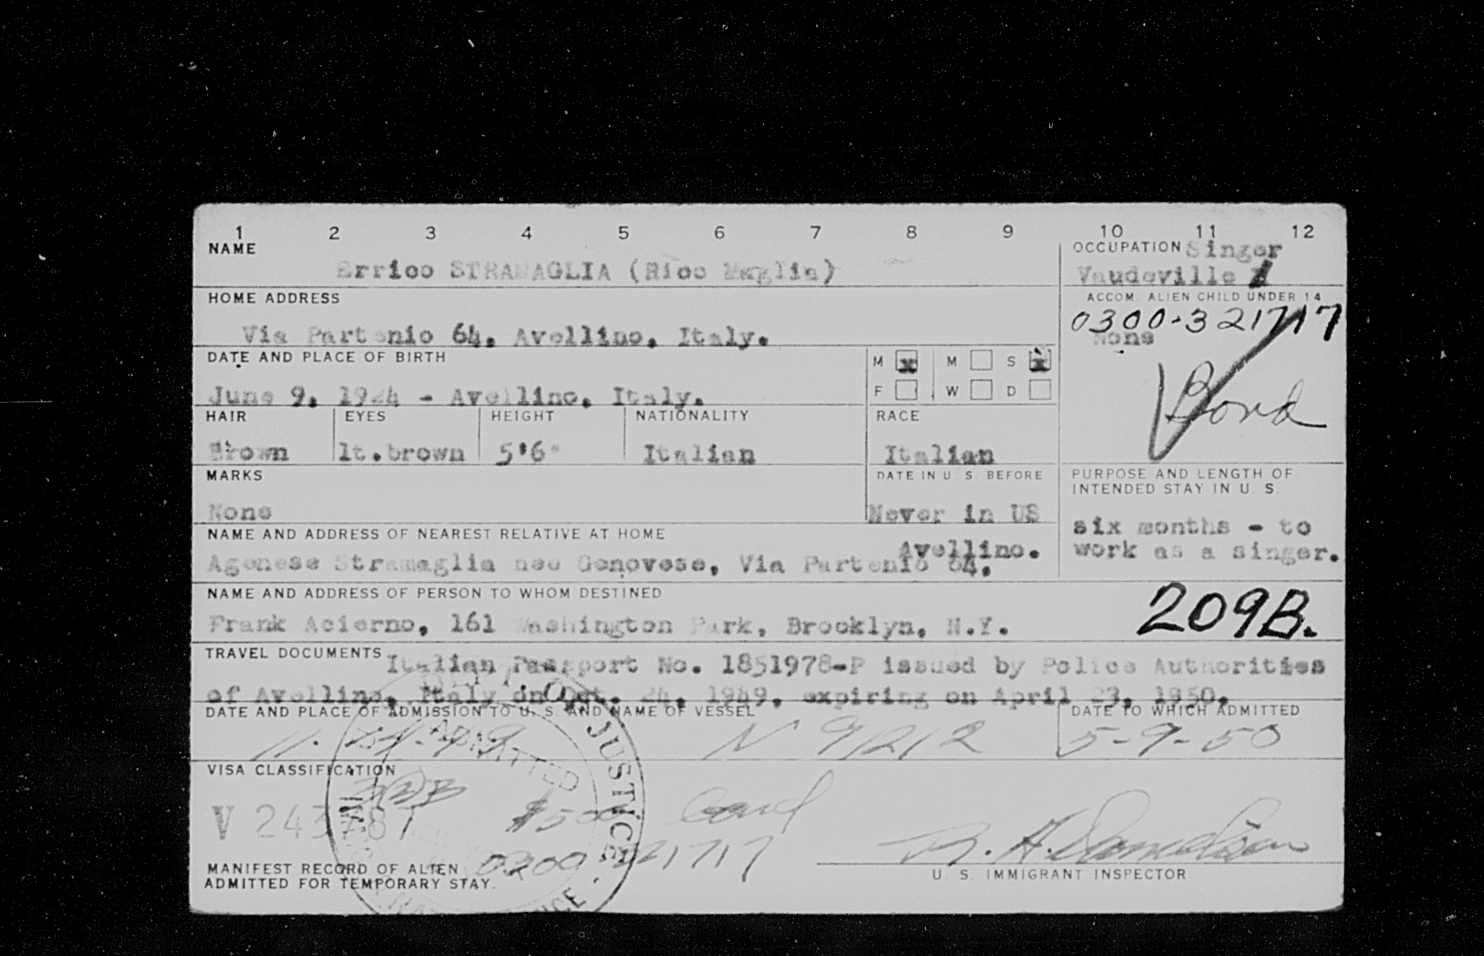 1 2 3 4 5 6 7 8 9 10 11 12
NAME
Errico STRAMAGLIA (Rico Maglia)
OCCUPATION Singer
Vaudeville
HOME ADDRESS
Via Partenio 64, Avellino, Italy.
ACCOM. ALIEN CHILD UNDER 14
0300-321717
None
Bond
DATE AND PLACE OF BIRTH
June 9, 1924 - Avellino, Italy.
M x M S x
F W D
HAIR EYES HEIGHT NATIONALITY RACE
Brown lt.brown 5'6" Italian Italian
MARKS
None
DATE IN U. S. BEFORE
Never in US
PURPOSE AND LENGTH OF
INTENDED STAY IN U. S.
six months - to
work as a singer.
NAME AND ADDRESS OF NEAREST RELATIVE AT HOME
Avellino.
Agenese Stramaglia nee Genovese, Via Partenio 64,
NAME AND ADDRESS OF PERSON TO WHOM DESTINED
Frank Acierno, 161 Washington Park, Brooklyn, N.Y.
209B.
TRAVEL DOCUMENTS Italian Passport No. 1851978-P issued by Police Authorities
of Avellino, Italy on Oct. 24, 1949, expiring on April 23, 1950.
DATE AND PLACE OF ADMISSION TO U. S. AND NAME OF VESSEL
N 91212
DATE TO WHICH ADMITTED
5-9-50
VISA CLASSIFICATION
V 243781
$500
ADMITTED
JUSTICE
MANIFEST RECORD OF ALIEN
ADMITTED FOR TEMPORARY STAY.
0300 321717
U. S. IMMIGRANT INSPECTOR